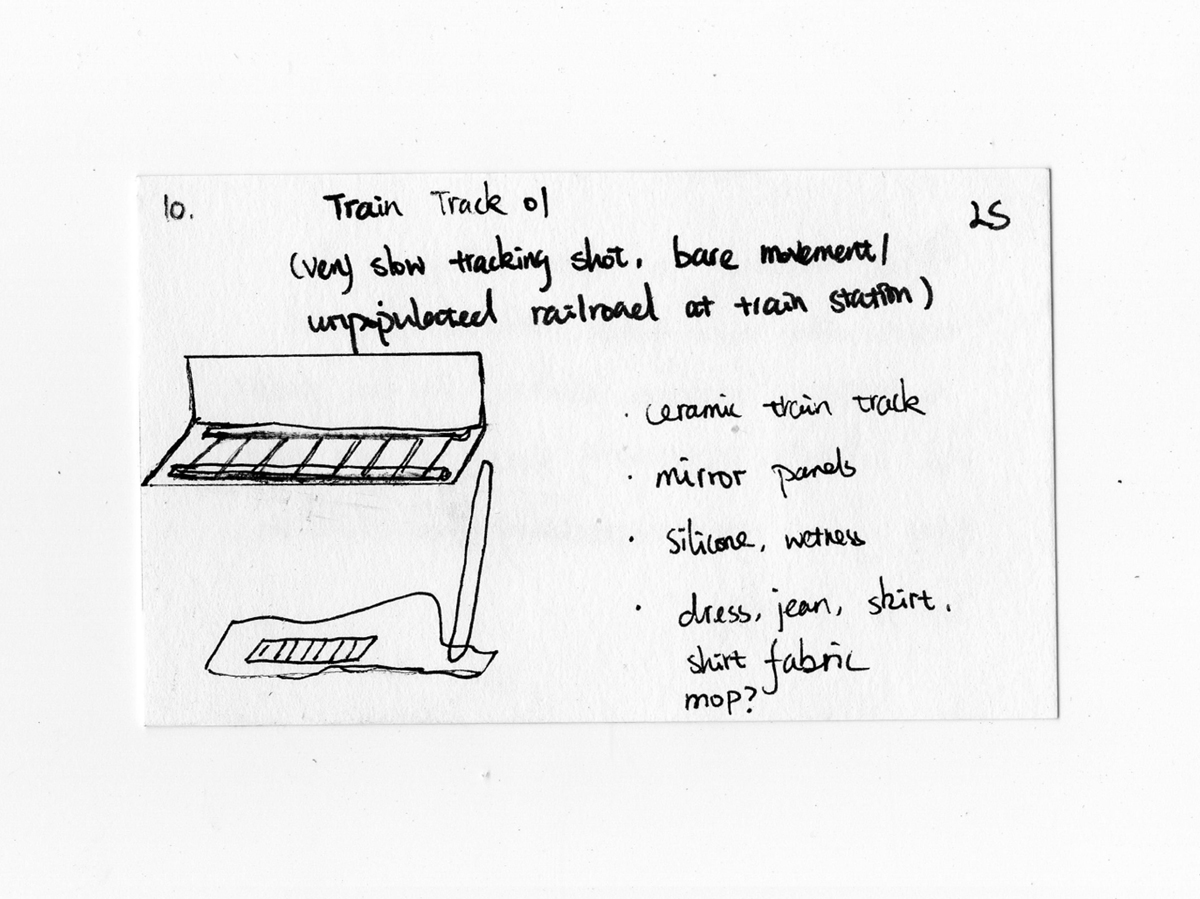 10. Train Track 01 LS
(very slow tracking shot, bare movement/
unpopulated railroad at train station)
· ceramic train track
· mirror panels
· silicone, wetness
· dress, jean, skirt,
shirt fabric
mop?